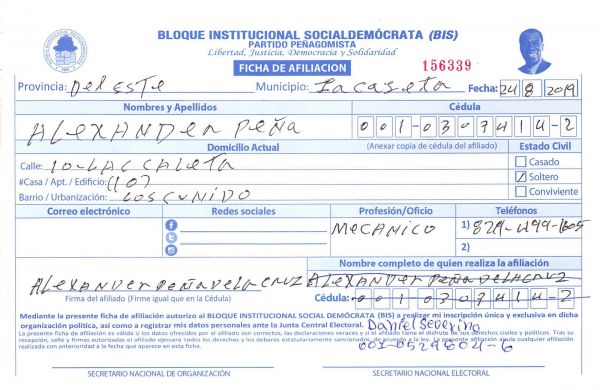 BLOQUE INSTITUCIONAL SOCIALDEMÓCRATA (BIS)
PARTIDO PEÑAGOMISTA
Libertad, Justicia, Democracia y Solidaridad
FICHA DE AFILIACION
156339
Provincia: Del ESTE Municipio: La Caleta Fecha: 24 8 2019
Nombres y Apellidos Cédula
ALEXANDER PEÑA 001-0307414-2
Domicilio Actual (Anexar copia de cédula del afiliado) Estado Civil
Calle: 10-LAC CALETA Casado
#Casa / Apt. / Edificio: (10) Soltero
Barrio / Urbanización: LOS CUNIDO Conviviente
Correo electrónico Redes sociales Profesión/Oficio Teléfonos
MECANICO 1) 829-499-1605
2)
Nombre completo de quien realiza la afiliación
ALEXANDER PEÑA DE LA CRUZ ALEXANDER PEÑA DE LA CRUZ
Firma del afiliado (Firme igual que en la Cédula) Cédula: 001 0307414-2
Mediante la presente ficha de afiliación autorizo al BLOQUE INSTITUCIONAL SOCIAL DEMÓCRATA (BIS) a realizar mi inscripción única y exclusiva en dicha
organización política, así como a registrar mis datos personales ante la Junta Central Electoral.
Daniel Severino
La presente ficha de afiliación es válida si los datos ofrecidos por el afiliado son correctos, las declaraciones veraces y si el afiliado tiene el disfrute de sus derechos civiles y políticos. Tras su
recepción, sello y firmas autorizadas el afiliado ejercerá todos los derechos y los deberes estatutariamente sancionados, de acuerdo a la ley. El Partido puede anular cualquier afiliación
realizada con anterioridad a la fecha que aparece en esta ficha.
001-0529604-6
SECRETARIO NACIONAL DE ORGANIZACIÓN SECRETARIO NACIONAL ELECTORAL